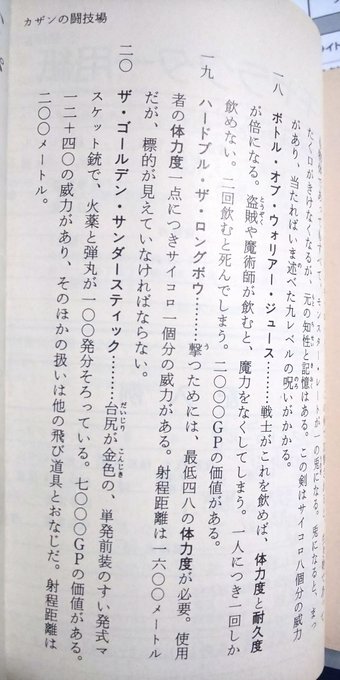 カザンの闘技場
モンスター・レートが一の兎になる。兎になると、まっ
たく口がきけなくなるが、元の知性と記憶はある。この剣はサイコロ八個分の威力
があり、当たればいま述べた九レベルの呪いがかかる。
一八 ボトル・オブ・ウォリアー・ジュース………戦士がこれを飲めば、体力度と耐久度
が倍になる。盗賊や魔術師が飲むと、魔力をなくしてしまう。一人につき一回しか
飲めない。二回飲むと死んでしまう。二〇〇〇GPの価値がある。
一九 ハードブル・ザ・ロングボウ………撃つためには、最低四八の体力度が必要。使用
者の体力度一点につきサイコロ一個分の威力がある。射程距離は一六〇〇メートル
だが、標的が見えていなければならない。
二〇 ザ・ゴールデン・サンダースティック………台尻が金色の、単発前装のすい発式マ
スケット銃で、火薬と弾丸が一〇〇発分そろっている。七〇〇〇GPの価値がある。
一二+四〇の威力があり、そのほかの扱いは他の飛び道具とおなじだ。射程距離は
二〇〇メートル。